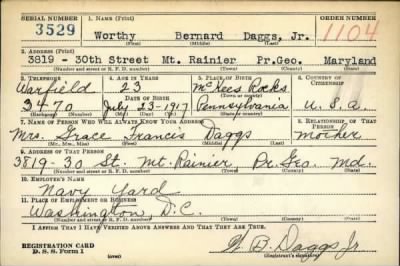 SERIAL NUMBER 1. NAME (Print) ORDER NUMBER
3529 Worthy Bernard Daggs, Jr. 1104
(First) (Middle) (Last)
2. ADDRESS (Print)
3819 - 30th Street Mt. Rainier Pr.Geo. Maryland
(Number and street or R. F. D. number) (Town) (County) (State)
3. TELEPHONE 4. AGE IN YEARS 5. PLACE OF BIRTH 6. COUNTRY OF CITIZENSHIP
Warfield 23 McKees Rocks
DATE OF BIRTH (Town or county)
3470 July-23-1917 Pennsylvania U.S.A.
(Exchange) (Number) (Mo.) (Day) (Yr.) (State or country)
7. NAME OF PERSON WHO WILL ALWAYS KNOW YOUR ADDRESS 8. RELATIONSHIP OF THAT PERSON
Mrs. Grace Francis Daggs Mother
(Mr., Mrs., Miss) (First) (Middle) (Last)
9. ADDRESS OF THAT PERSON
3819-30 St. Mt. Rainier Pr. Geo. Md.
(Number and street or R. F. D. number) (Town) (County) (State)
10. EMPLOYER'S NAME
Navy Yard
11. PLACE OF EMPLOYMENT OR BUSINESS
Washington, D.C.
(Number and street or R. F. D. number) (Town) (County) (State)
I AFFIRM THAT I HAVE VERIFIED ABOVE ANSWERS AND THAT THEY ARE TRUE.
REGISTRATION CARD
D. S. S. Form 1 W B Daggs Jr
(Registrant's signature)